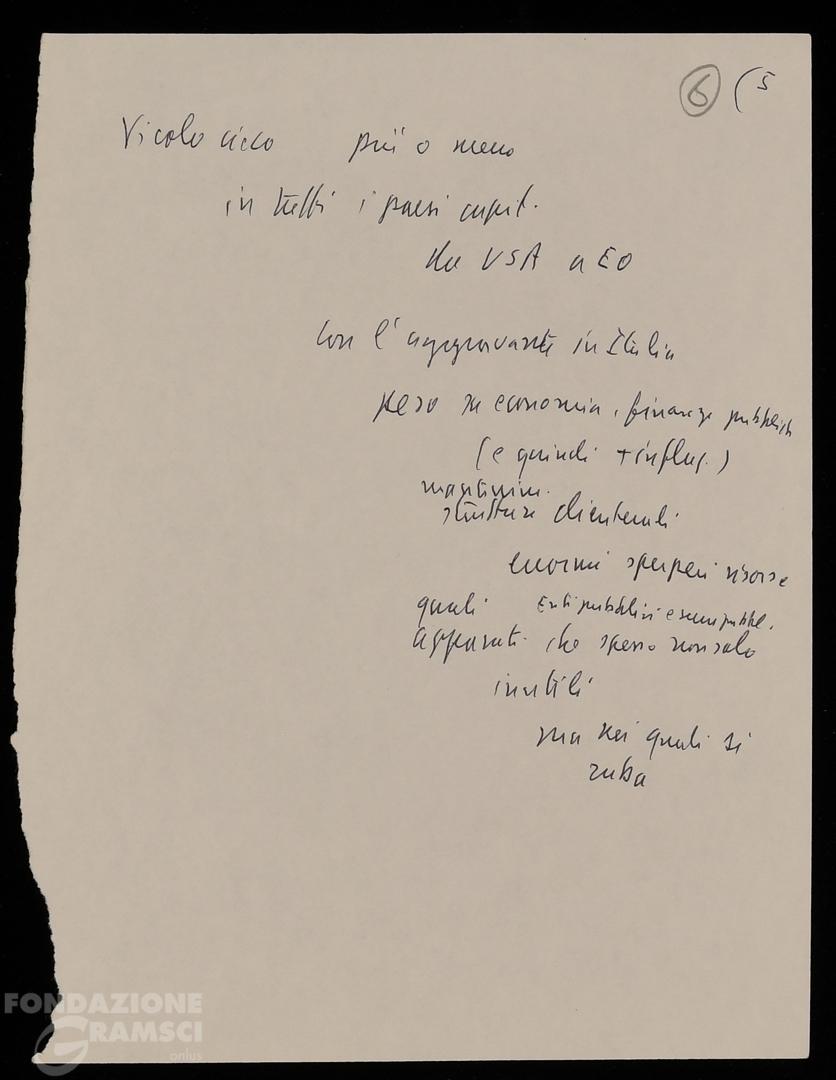 6 (5
Vicolo cieco più o meno
in tutti i paesi capit.
da USA a EO
con l'aggravante in Italia
peso su economia, finanze pubblich
(e quindi + influz.)
strutture clientelari
enormi sperperi risorse
quali Enti pubblici e semipubbl.
apparati che spesso non solo
inutili
ma nei quali si
ruba
FONDAZIONE
GRAMSCI
onlus